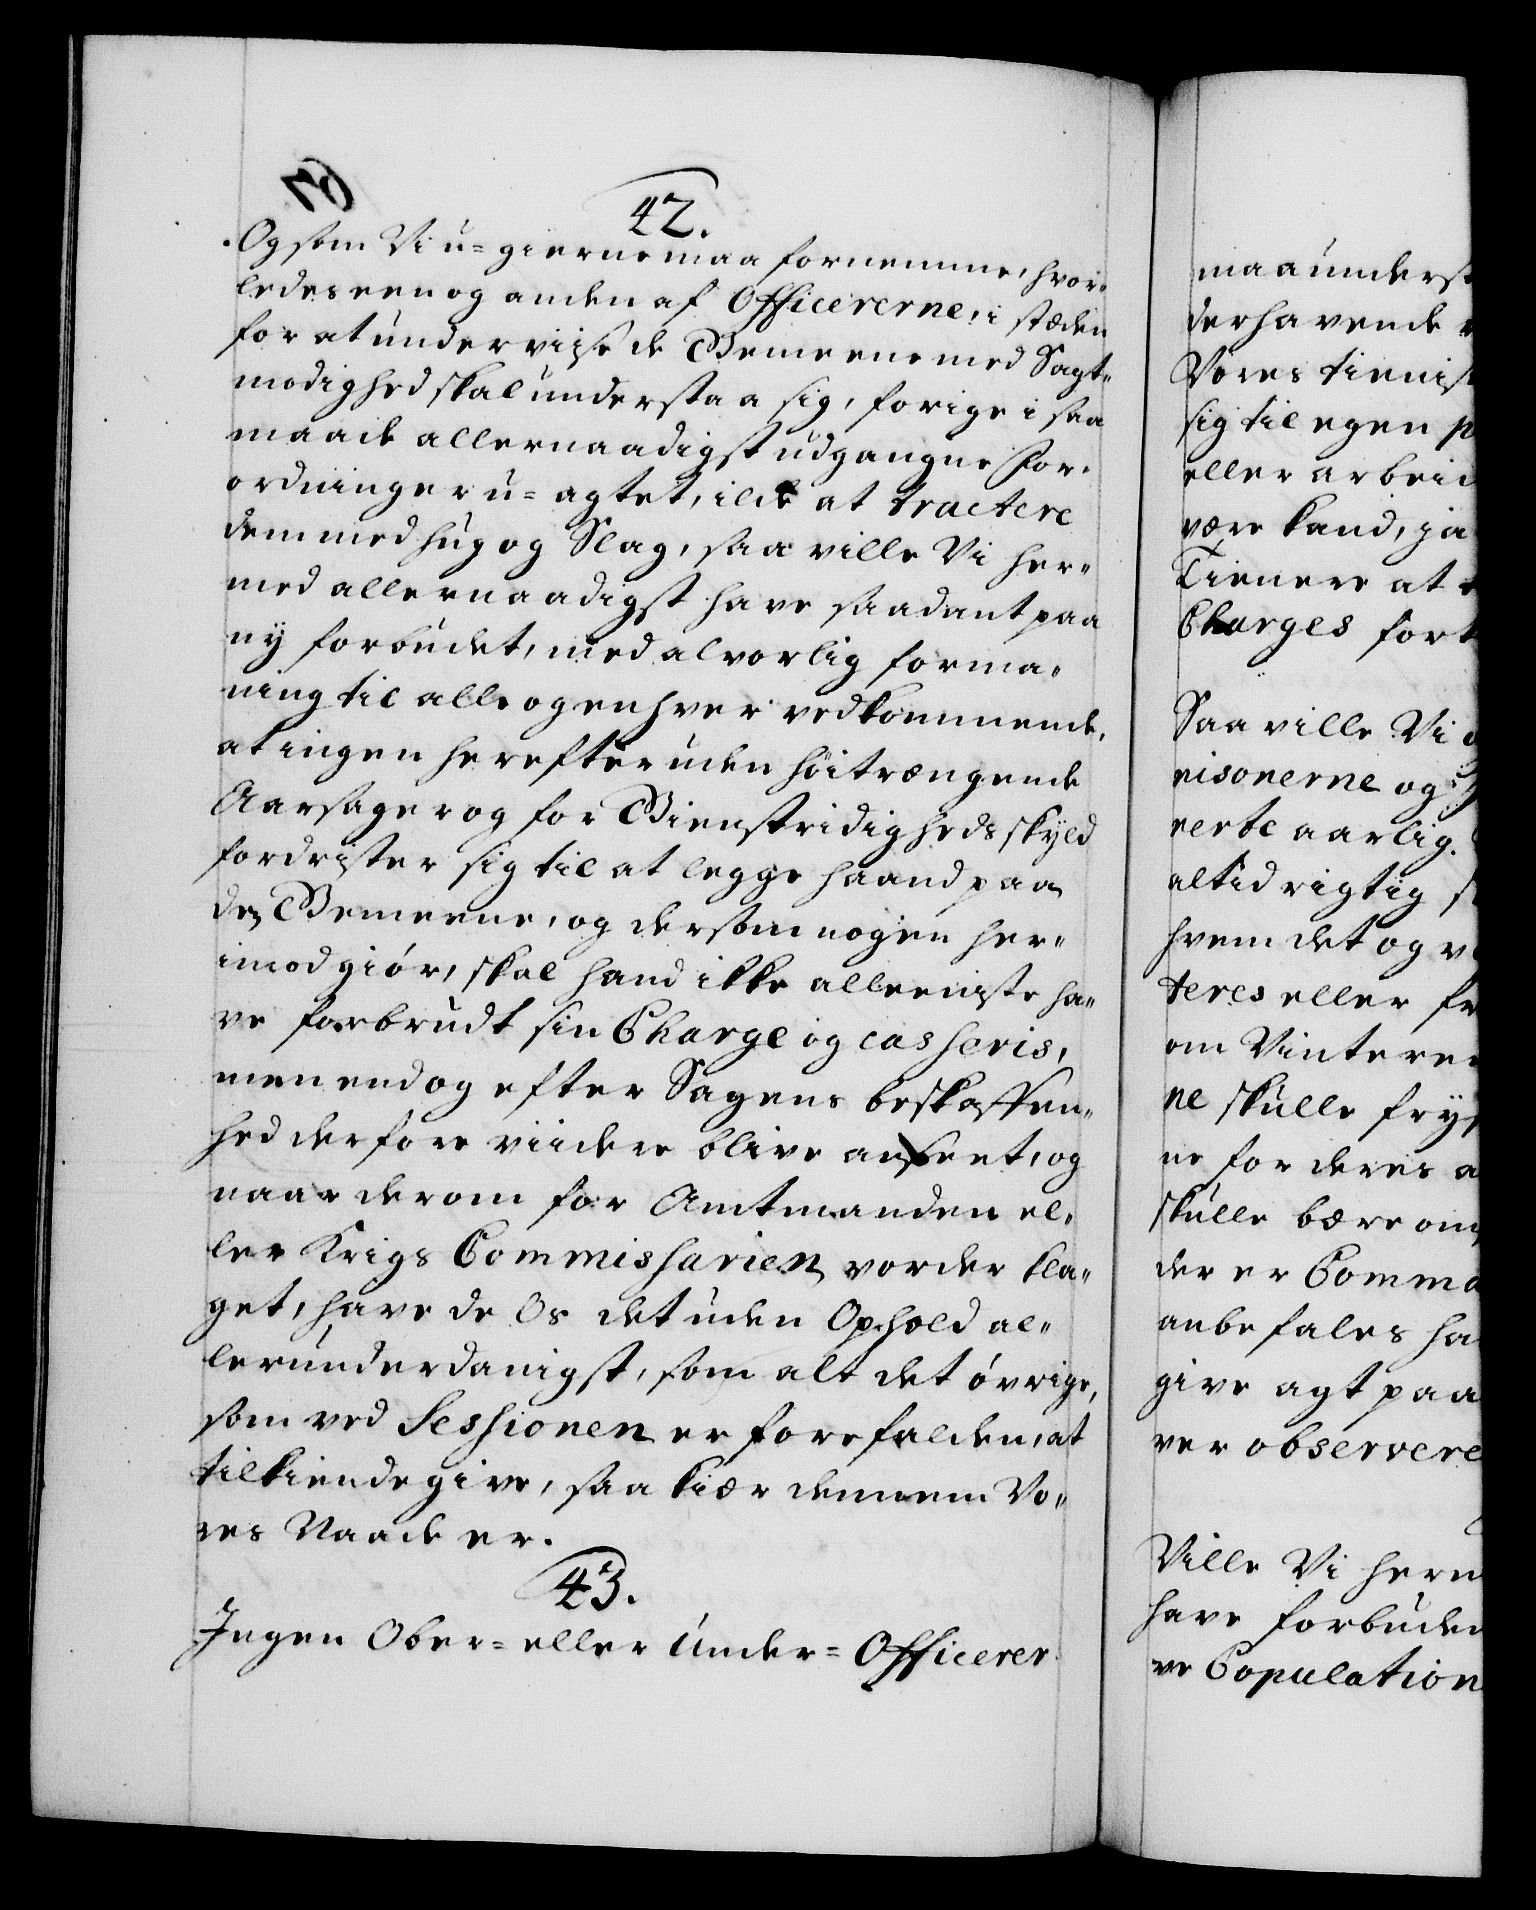 42.
Og som Vi u= gierne maa fornemme, hvor„
ledes een og anden af Officererne, i stæden
for at underviise de Gemeene med Sagt„
modighed skal understaa sig, forige i saa
maade allernaadigst udgangne For„
ordninger u= agtet, ilde at tractere
dem med hug og Slag, saa ville Vi her„
med allernaadigst have saadant paa
ny forbudet, med alvorlig forma„
ning til alle og enhver vedkommende,
at ingen herefter uden höitrængende
Aarsager og for Gienstridigheds skyld
fordrister sig til at legge haand paa
de Gemeene, og dersom nogen her„
imod giór, skal hand ikke alleeniste ha„
ve forbrudt sin Charge og casheris,
men endog efter Sagens beskaffen„
hed derfore viidere blive anseet, og
naar derom for Amtmanden el„
ler Krigs Commisharien vorder kla„
get, have de Os det uden Ophold al„
lerunderdanigst, som alt det óvrige,
som ved Seshionen er forefalden, at
tilkiende give, saa kiær dennem Vo„
res Naade er.
43.
Ingen Ober= eller Under= Officerer
maa underst
derhavende
Vores tienist
sig til egen p
eller arbeid
være kand, ja
Tienere at
Charges fort
Saa ville Vi
nisonerne og
rerte aarlig.
altid rigtig
hvem det og v
teres eller fr
om Vinteren
ne skulle frys
ne for deres a
skulle bære om
der er Comma
anbefales ha
give agt paa
ver observere
Ville Vi herm
have forbuden
ve Copulation